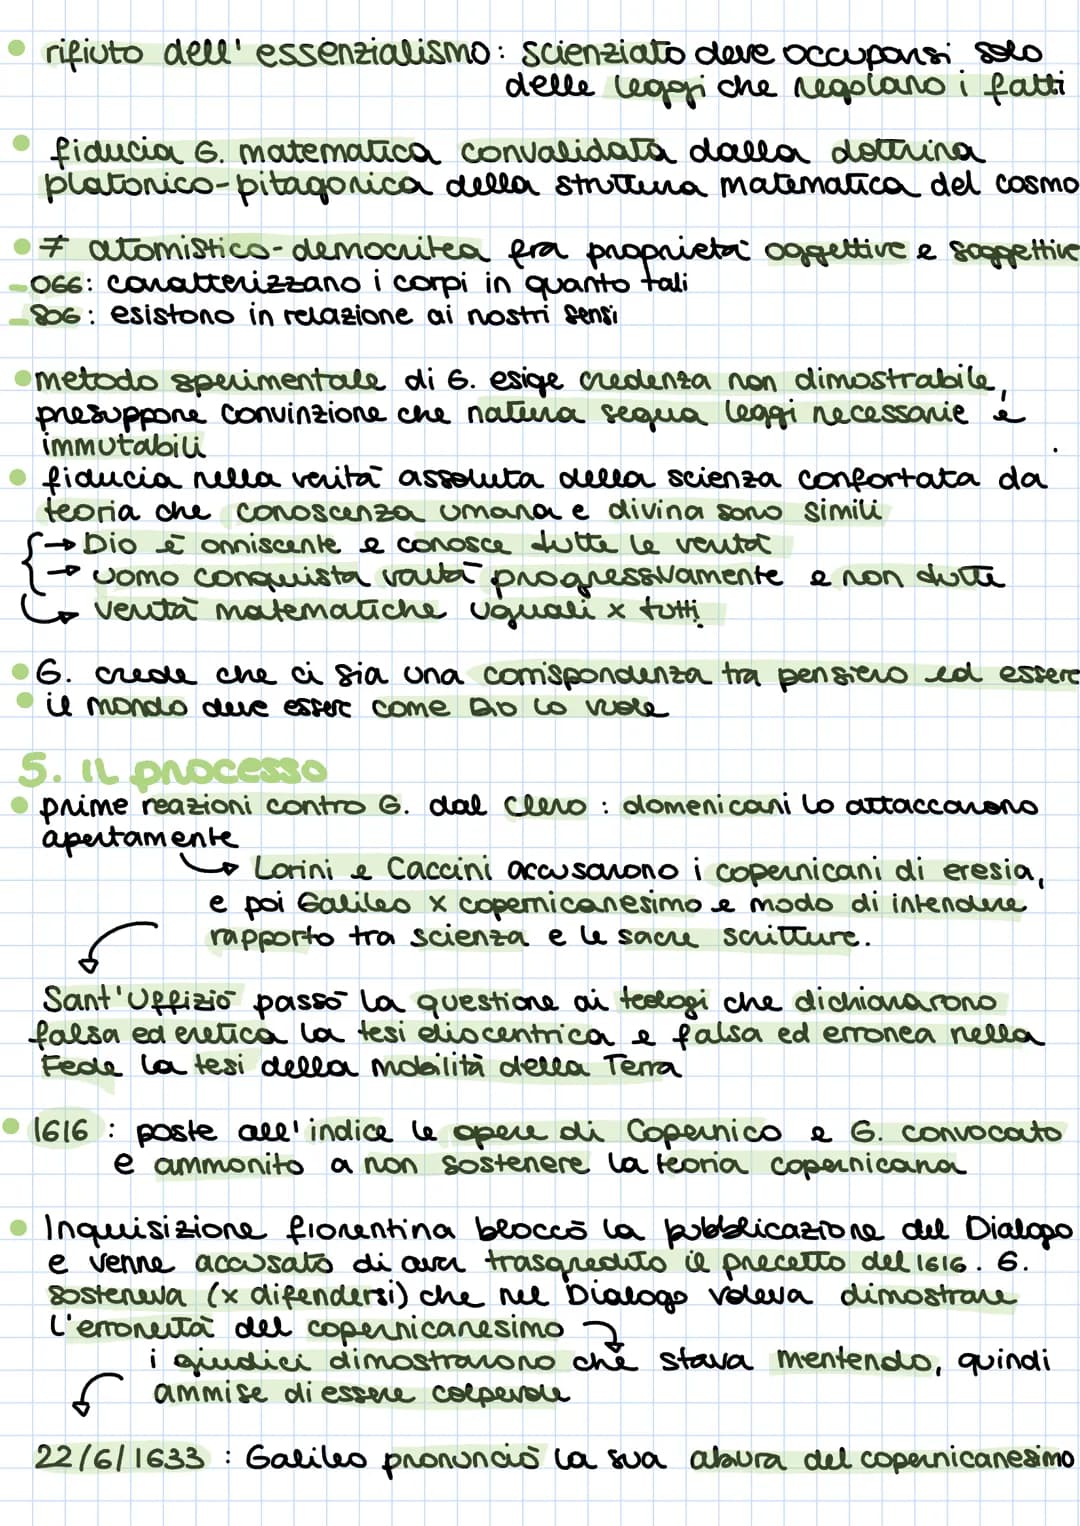 rifiuto dell' essenzialismo: scienziato deve occuparsi solo
delle leggi che regolano i fatti
fiducia G. matematica convalidata dalla dottrina
platonico-pitagorica della struttura matematica del cosmo
≠ atomistico-democritea fra proprietà oggettive e soggettive
-OGG: caratterizzano i corpi in quanto tali
-SOG: esistono in relazione ai nostri sensi
metodo sperimentale di G. esige credenza non dimostrabile,
presuppone convinzione che natura segua leggi necessarie e
immutabili
fiducia nella verità assoluta della scienza confortata da
teoria che conoscenza umana e divina sono simili
→ Dio è onniscente e conosce tutte le verità
→ uomo conquista verità progressivamente e non tutte
→ verità matematiche uguali x tutti
G. crede che ci sia una corrispondenza tra pensiero ed essere
il mondo deve essere come Dio lo vuole
5. IL processo
prime reazioni contro G. dal clero : domenicani lo attaccarono
apertamente
→ Lorini e Caccini accusarono i copernicani di eresia,
e poi Galileo x copernicanesimo e modo di intendere
rapporto tra scienza e le sacre scritture.
Sant'Uffizio passò la questione ai teologi che dichiararono
falsa ed eretica la tesi eliocentrica e falsa ed erronea nella
Fede la tesi della mobilità della Terra
1616 : poste all'indice le opere di Copernico e G. convocato
e ammonito a non sostenere la teoria copernicana
Inquisizione fiorentina bloccò la pubblicazione del Dialogo
e venne accusato di aver trasgredito il precetto del 1616. G.
sosteneva (x difendersi) che nel Dialogo voleva dimostrare
l'erroneità del copernicanesimo
i giudici dimostrarono che stava mentendo, quindi
ammise di essere colpevole
22/6/1633 : Galileo pronunciò la sua abiura del copernicanesimo